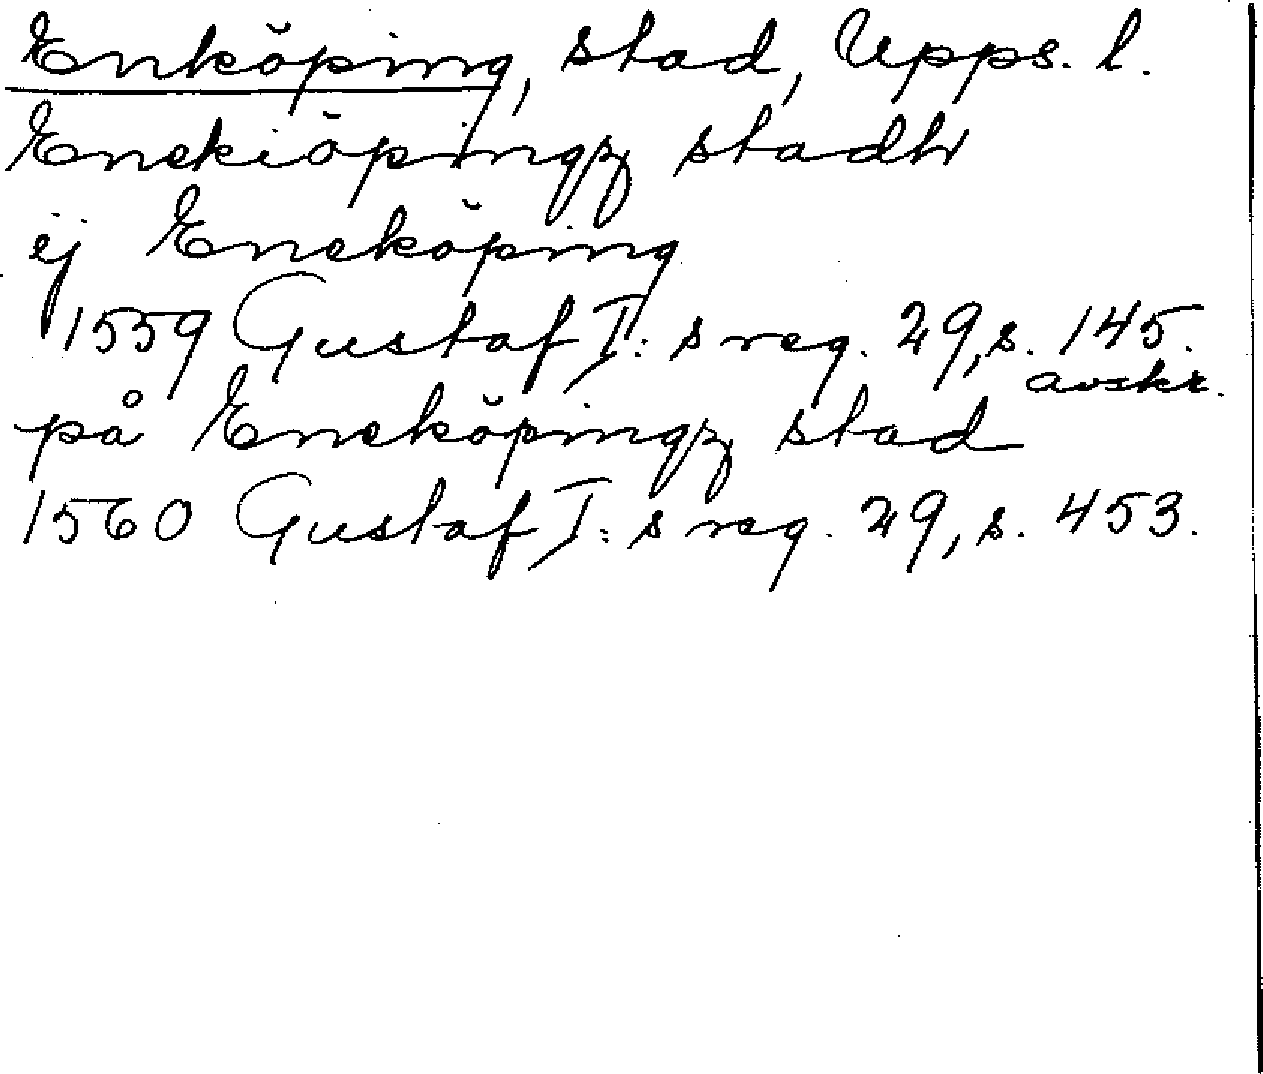 Enköping, stad, Upps. l.
Enekiöpingz stadh
ej Eneköping
1559 Gustaf I:s reg. 29, s. 145.
avskr.
på Eneköpingz stad
1560 Gustaf I:s reg. 29, s. 453.